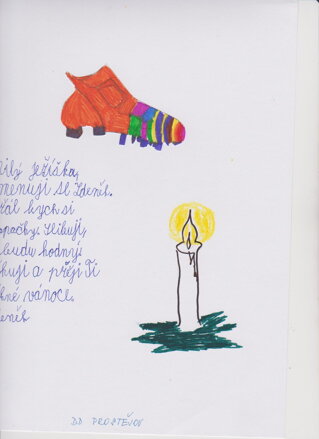 ilý Ježíšku,
menuji se Zdeněk.
řál bych si
opačky. Slibuji,
budu hodný.
kuji a přeji Ti
né vánoce.
eněk
DD PROSTĚJOV